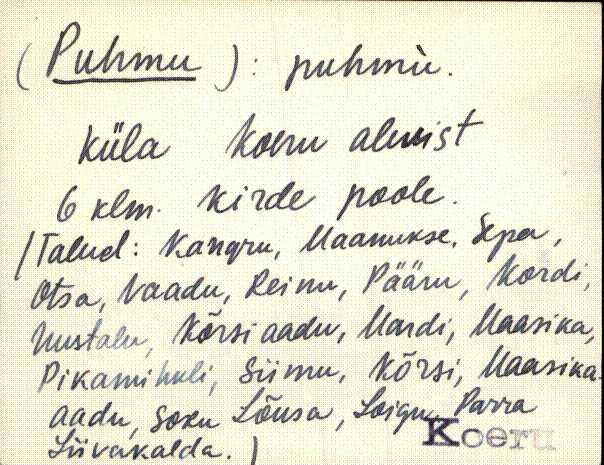 (Puhmu): puhmù.
Küla Koeru alevist
6 klm. kirde poole.
/Talud: Kangru, Maanukse, Sepa,
Otsa, Vaadu, Reinu, Pääru, Kordi,
Uustalu, Kõrsiaadu, Mardi, Maasika,
Pikamihkli, Siimu, Kõrsi, Maasika-
aadu, Soku Lõusa, Loigu, Parra
Liivakalda./
Koeru